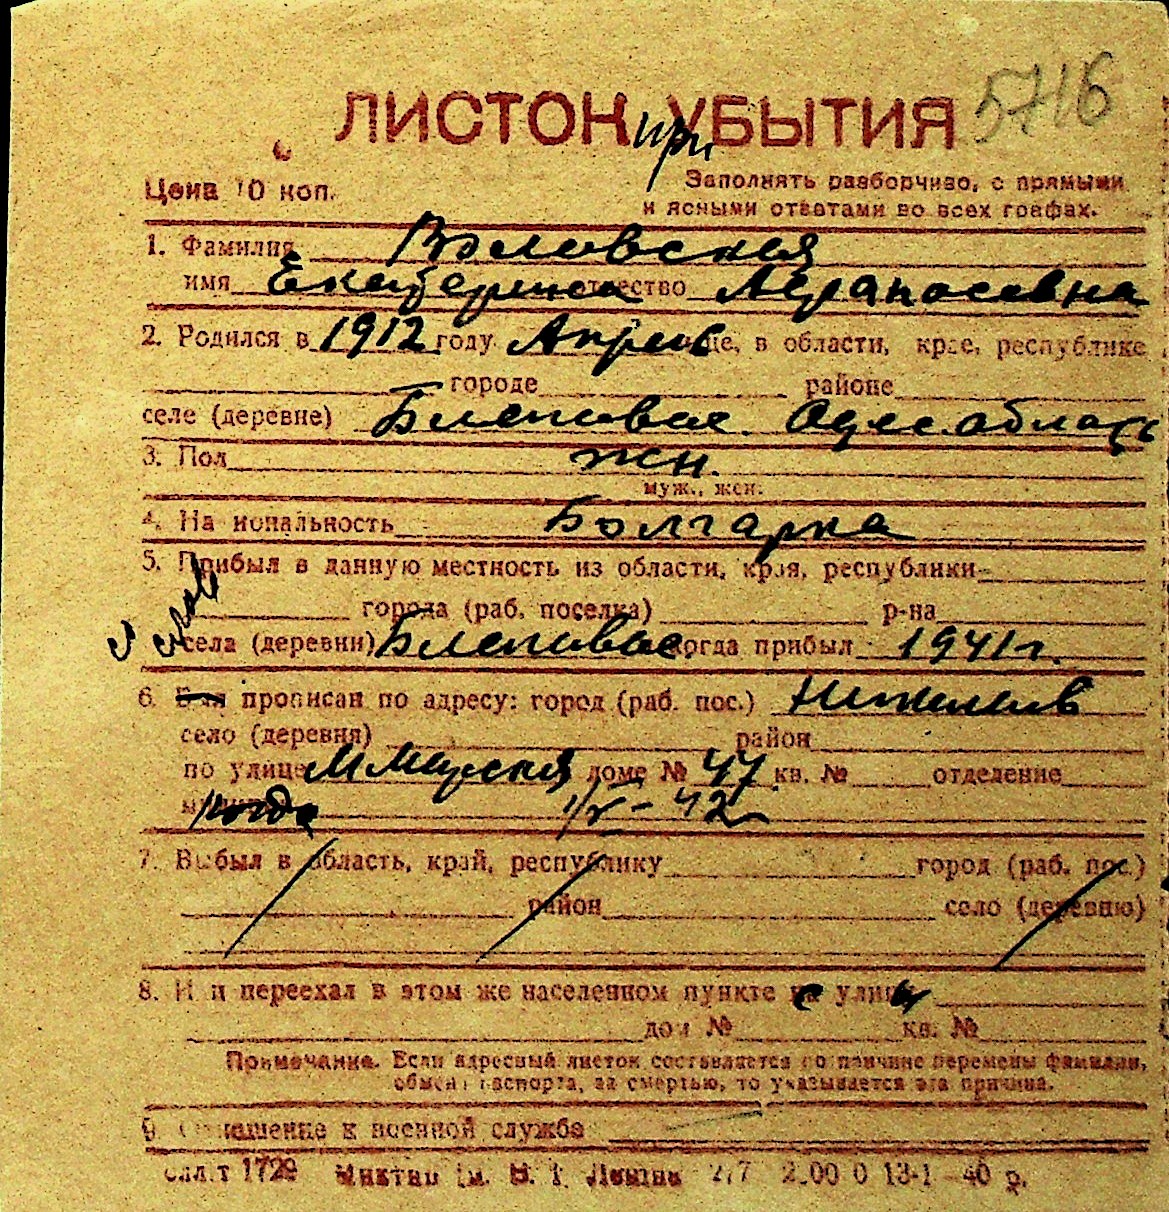 5716
ЛИСТОК при УБЫТИЯ
Цена 10 коп.
Заполнять разборчиво, с прямыми
и ясными ответами во всех графах.
1. Фамилия Воловская
имя Екатерина отчество
2. Родился в 1912 году Апрель це, в области, крае, республике
городе районе
селе (деревне) Одес. область
3. Пол жен.
муж., жен.
4. Национальность Болгарка
5. Прибыл в данную местность из области, края, республики
города (раб. поселка) р-на
села (деревни) когда прибыл 1941 г.
6. Был прописан по адресу: город (раб. пос.) Николаев
село (деревня) район
по улице доме № 47 кв. № отделение
когда 1/V-42
7. Выбыл в область, край, республику город (раб. пос.)
район село (деревню)
8. Или переехал в этом же населенном пункте на улицу
дом № кв. №
Примечание. Если адресный листок составляется по причине перемены фамилии,
обмена паспорта, за смертью, то указывается эта причина.
9. Отношение к военной службе
1729 Ленина 2/7 13-1-40 р.